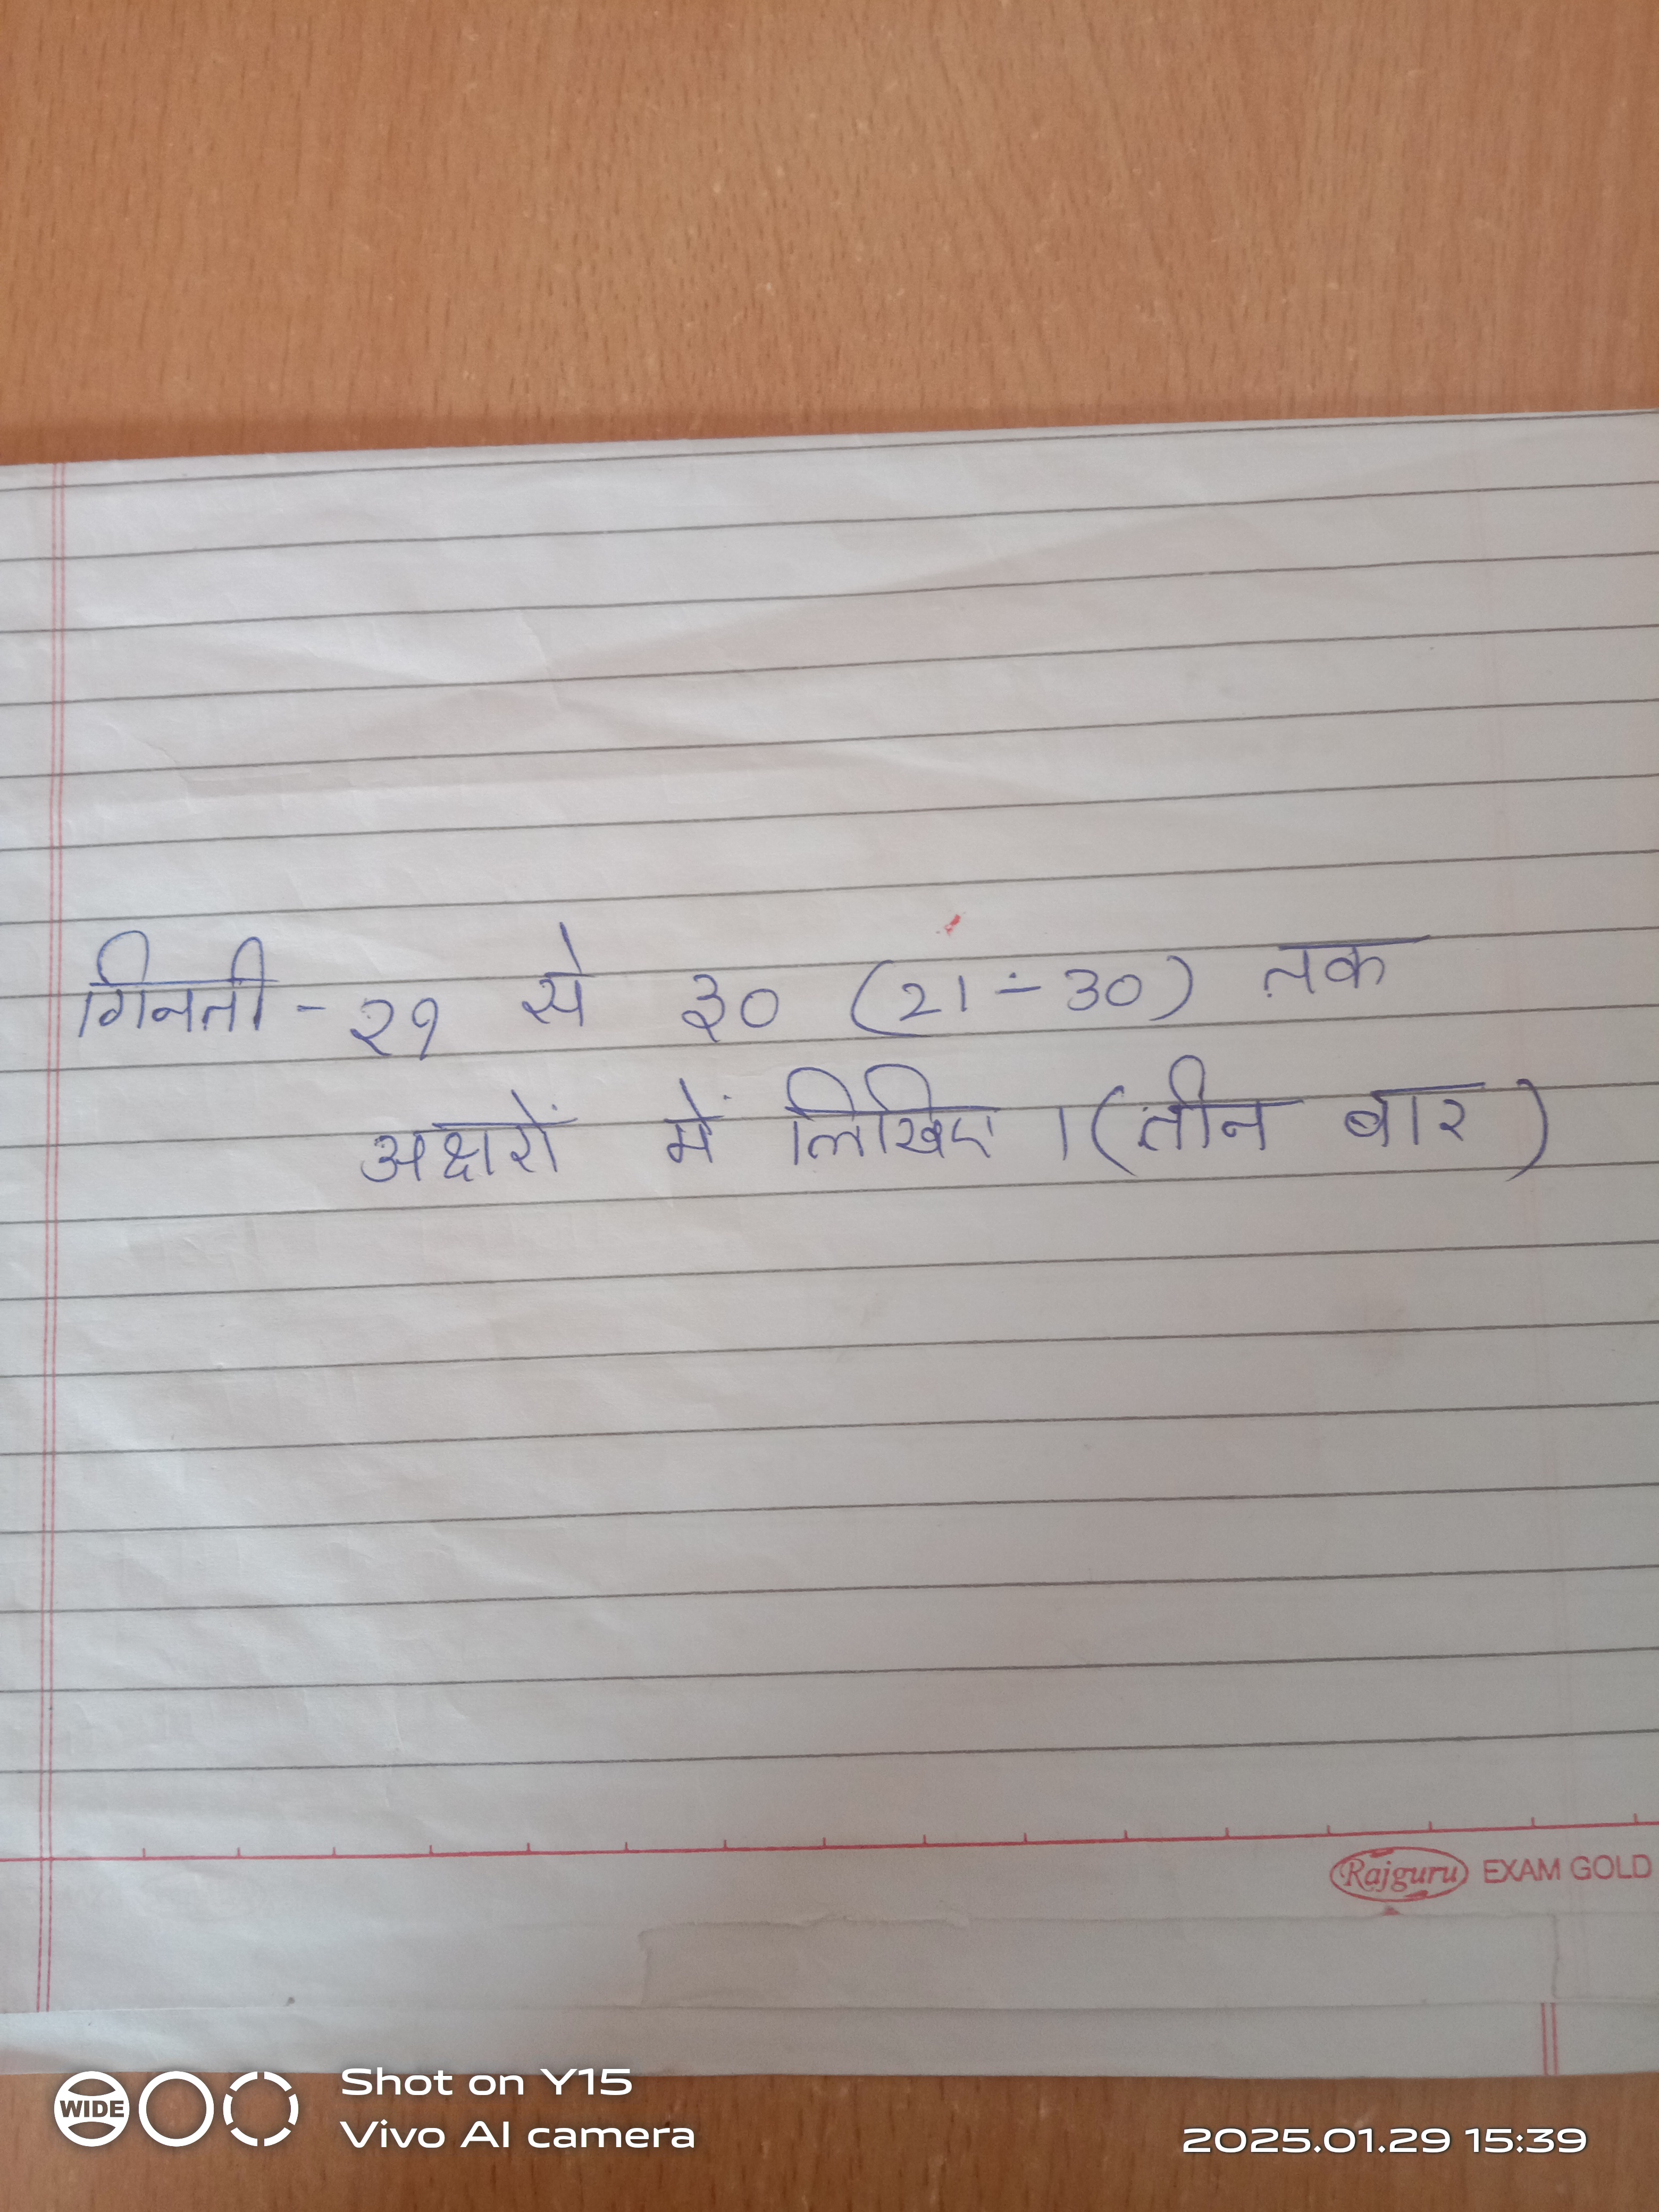 गिनती - २१ से ३० (21 ÷ 30) तक
अक्षरों में लिखिए । (तीन बार)
Rajguru EXAM GOLD
WIDE
Shot on Y15
Vivo AI camera
2025.01.29 15:39